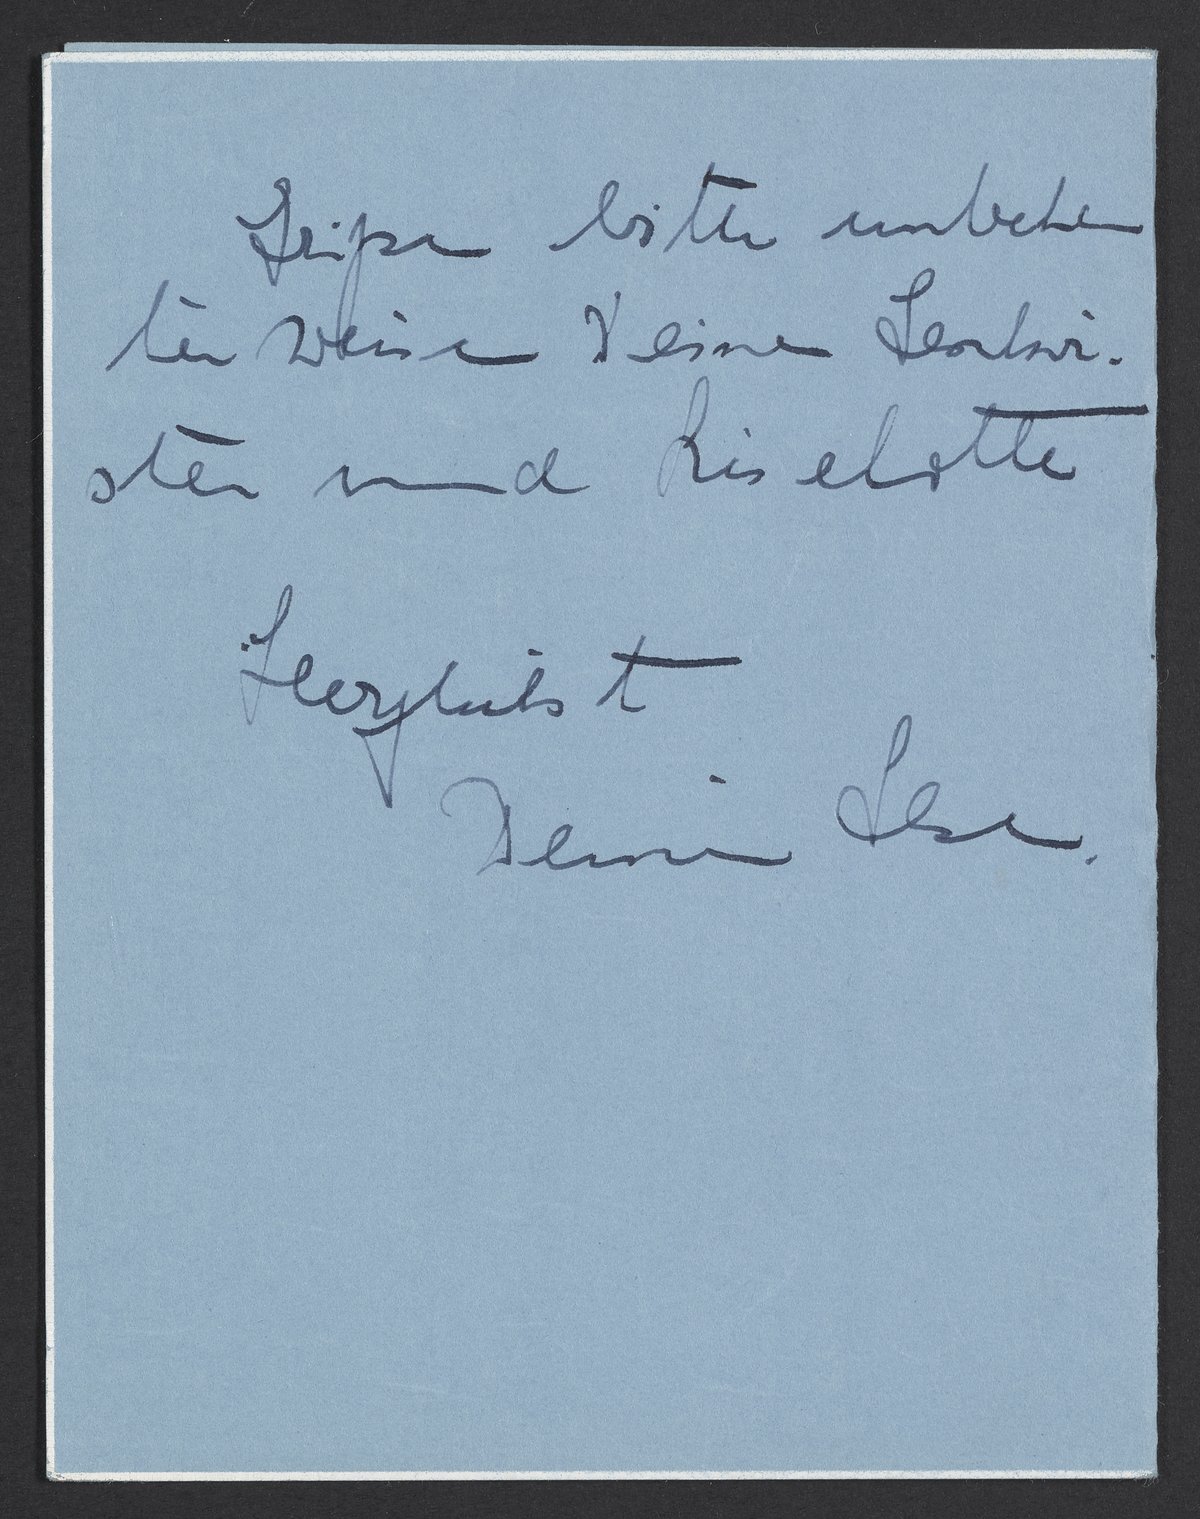 Grüsse bitte unbekan
ter Weise Deine Geschwi.
ster und Liselotte
Herzlichst
Deine Ilse.